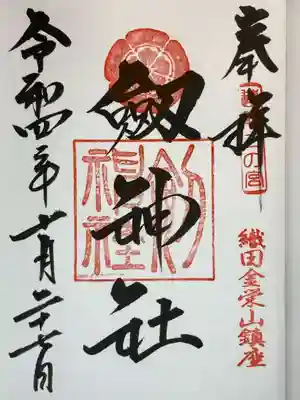 奉拝
織田金栄山鎮座
劔神社
劔神社
令和四年十一月二十七日